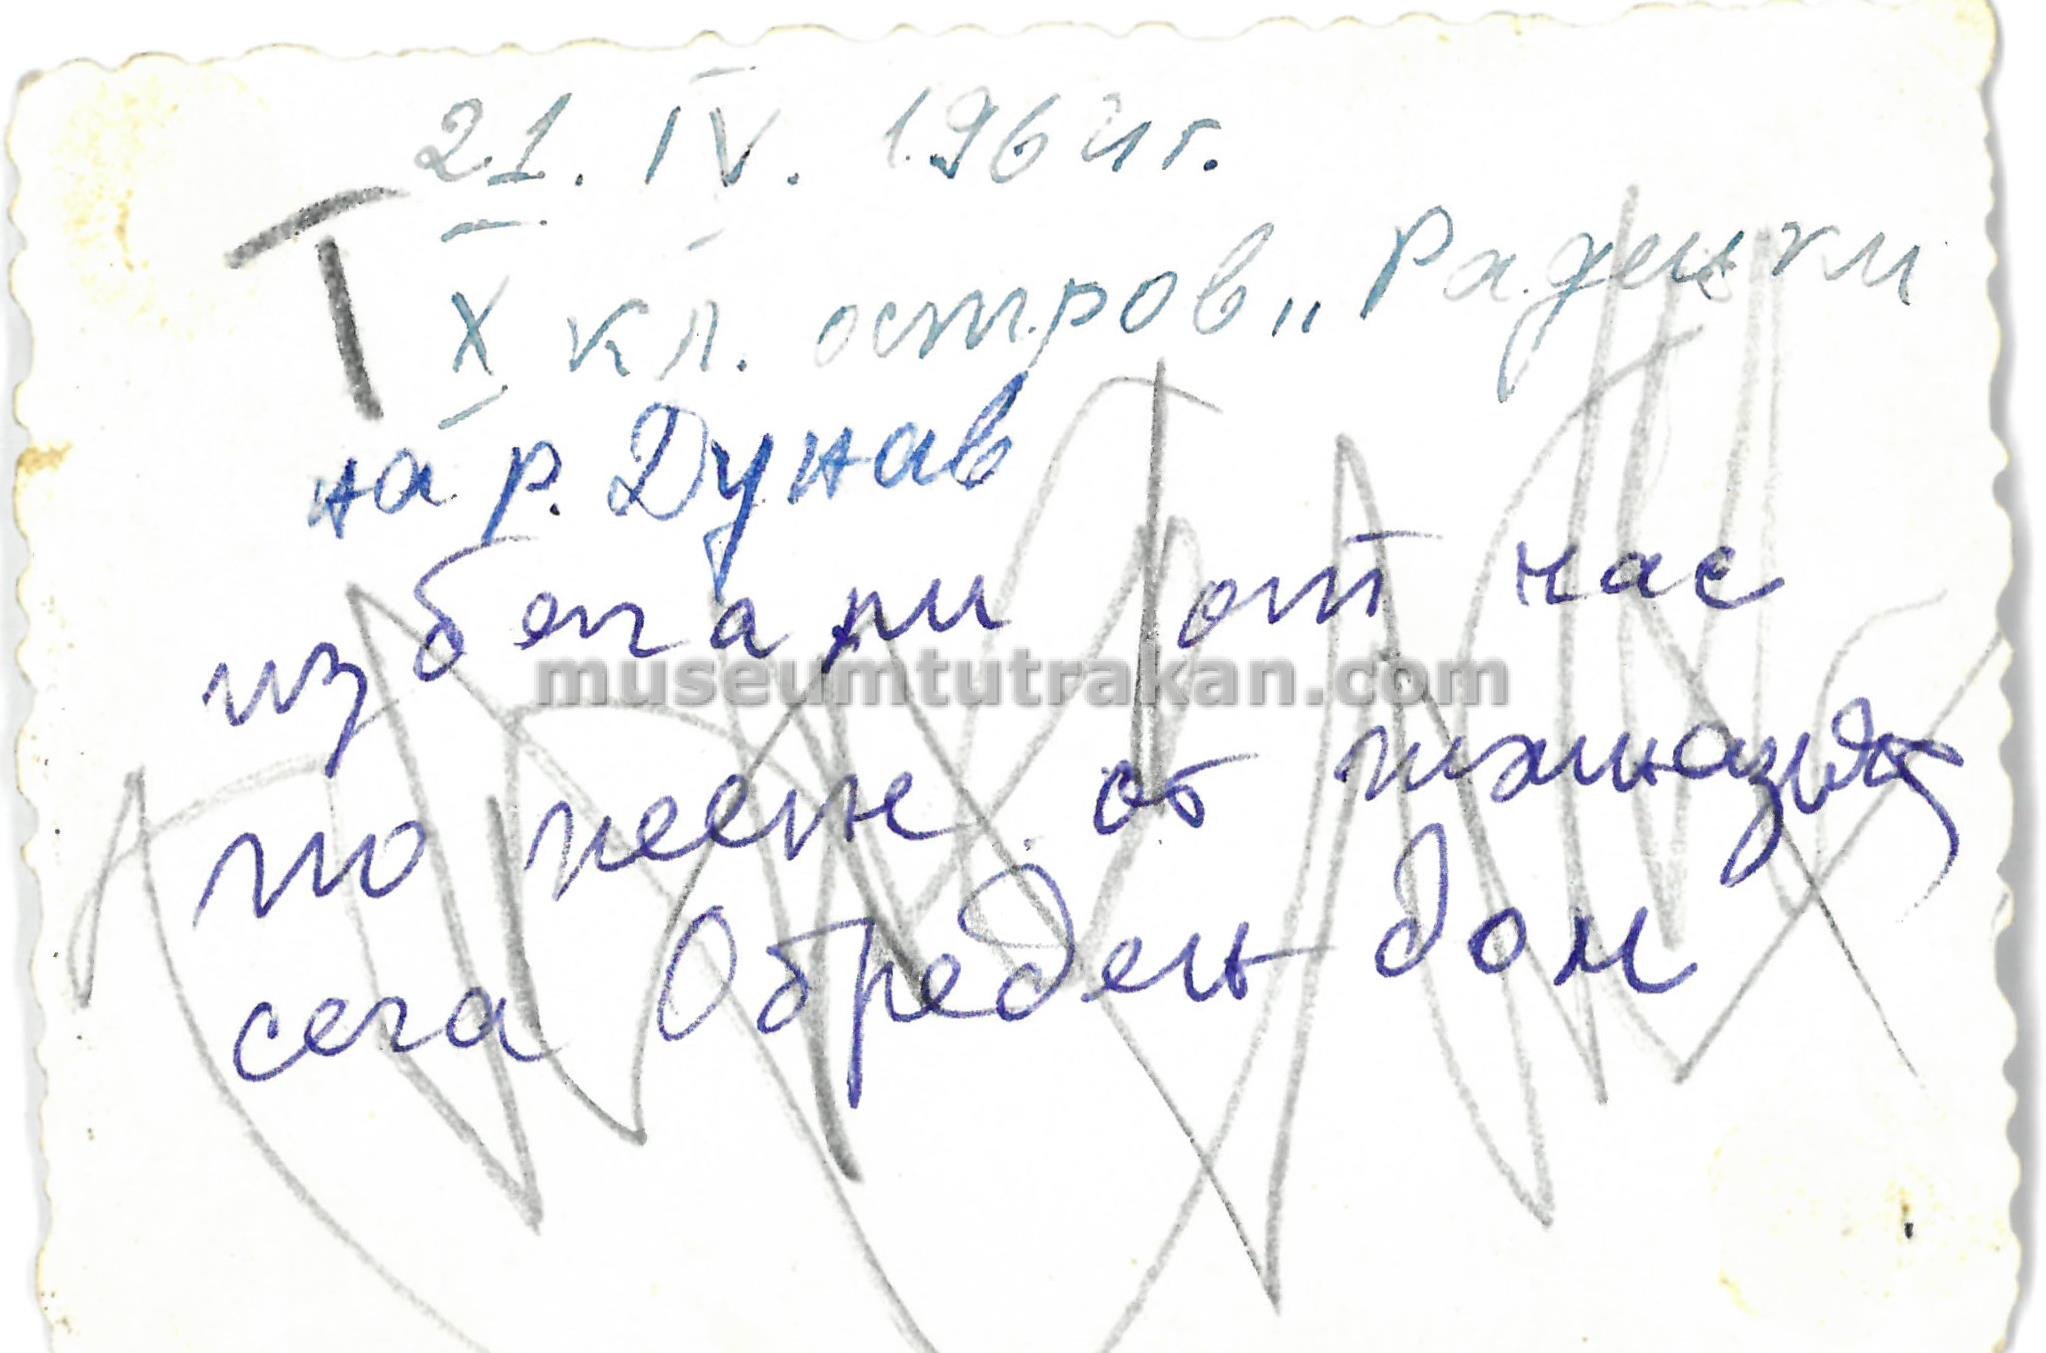 21. IV. 1964 г.
X кл. остров „Радецки
на р. Дунав
museumtutrakan.com
избегали от час
по пеене от
сега Обреден дом